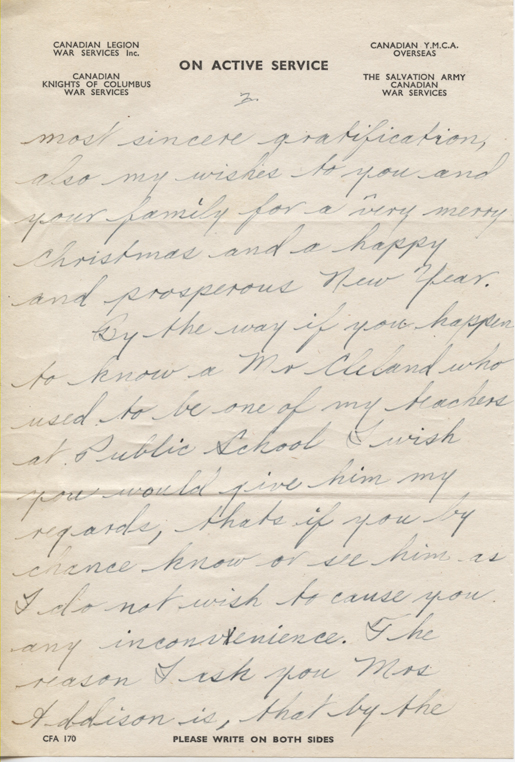 CANADIAN LEGION
WAR SERVICES Inc.
CANADIAN
KNIGHTS OF COLUMBUS
WAR SERVICES
ON ACTIVE SERVICE
CANADIAN Y.M.C.A.
OVERSEAS
THE SALVATION ARMY
CANADIAN
WAR SERVICES
2.
most sincere gratification,
also my wishes to you and
your family for a very merry
Christmas and a happy
and prosperous New Year.
By the way if you happen
to know a Mr Cleland who
used to be one of my teachers
at Public School I wish
you would give him my
regards, thats if you by
chance know or see him as
I do not wish to cause you
any inconvienience. The
reason I ask you Mrs
Addison is, that by the
CFA 170
PLEASE WRITE ON BOTH SIDES